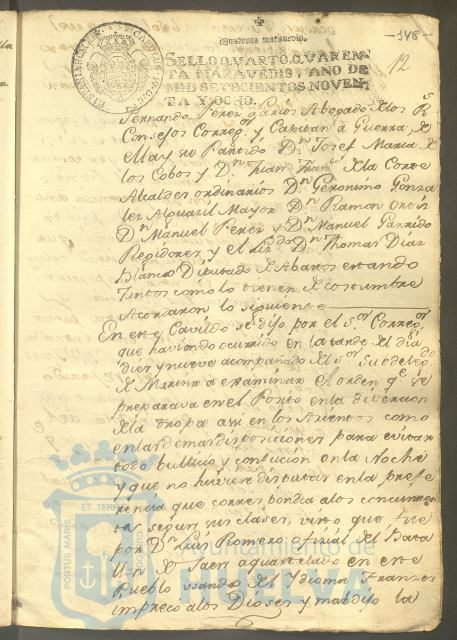 -148-
12
Quarenta maravedis.
SELLO QVARTO, QVAREN-
TA MARAVEDIS, AÑO DE
MIL SETECIENTOS NOVEN-
TA Y OCHO.
Fernando Perez Abogado Xlos Rs
Consejos Correxor y Capitan a Guerra X
Ella y su Partido Dn Josef Maria X
los Cobos y Dn Juan Franco Xla Corte
Alcaldes ordinarios Dn Geronimo Gonza
lez Alguacil Mayor Dn Ramon
Dn Manuel Perez y Dn Manuel Garrido
Regidores, y el Lizdo Dn Thomas Diaz
Blanco Diputado X Abastos estando
Juntos como lo tienen X costumbre
Acordaron lo siguiente
En este Cavildo se dijo por el Sor Correxor
que haviendo ocurrido en la tarde X dia
diez y nueve acompañado X Sor Subdeldo
X Marina a examinar el orden qe se
preparava en el Posito en la divercion
Xla tropa asi en los Asientos como
en las demas disposiciones para evitar
todo bullicio y confucion en la Noche
y que no huviere disputas en la prefe
rencia que corresbondia a los concurren
tes segun sus clases, visto que fue
por Dn Luis Romero oficial X Bata
llon X Jaen aquartelado en este
Pueblo usando X Idioma Franzes
impreco a los Dioses y maldijo la
PORTUS MARIS
ET TERRAE
Ayuntamiento de
HUELVA